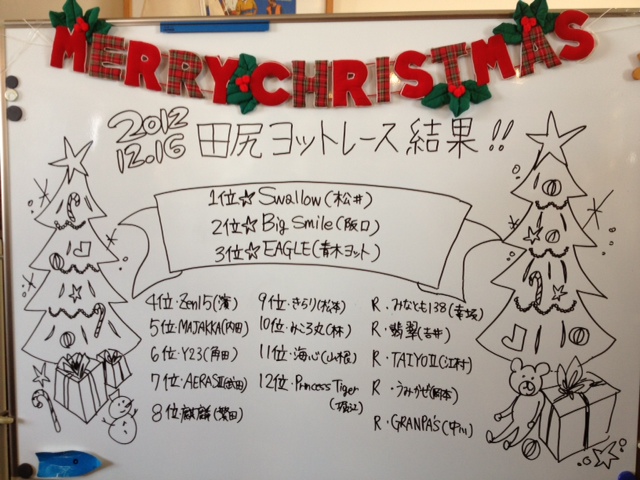 MERRY CHRISTMAS
2012
12.16
田尻ヨットレース 結果!!
1位☆Swallow(松井)
2位☆Big Smile(阪口)
3位☆EAGLE(青木ヨット)
4位・Zen15(濱)
5位・MAJAKKA(内田)
6位・Y23(角田)
7位・AERASⅡ(武田)
8位・麒麟(紫田)
9位・きらり(松本)
10位・みころ丸(林)
11位・海心(山根)
12位・Princess Tiger
(堀江)
R・みなとも138(幸場)
R・翡翠(吉井)
R・TAIYOⅡ(江村)
R・うみかぜ(岡本)
R・GRANPA's(中川)